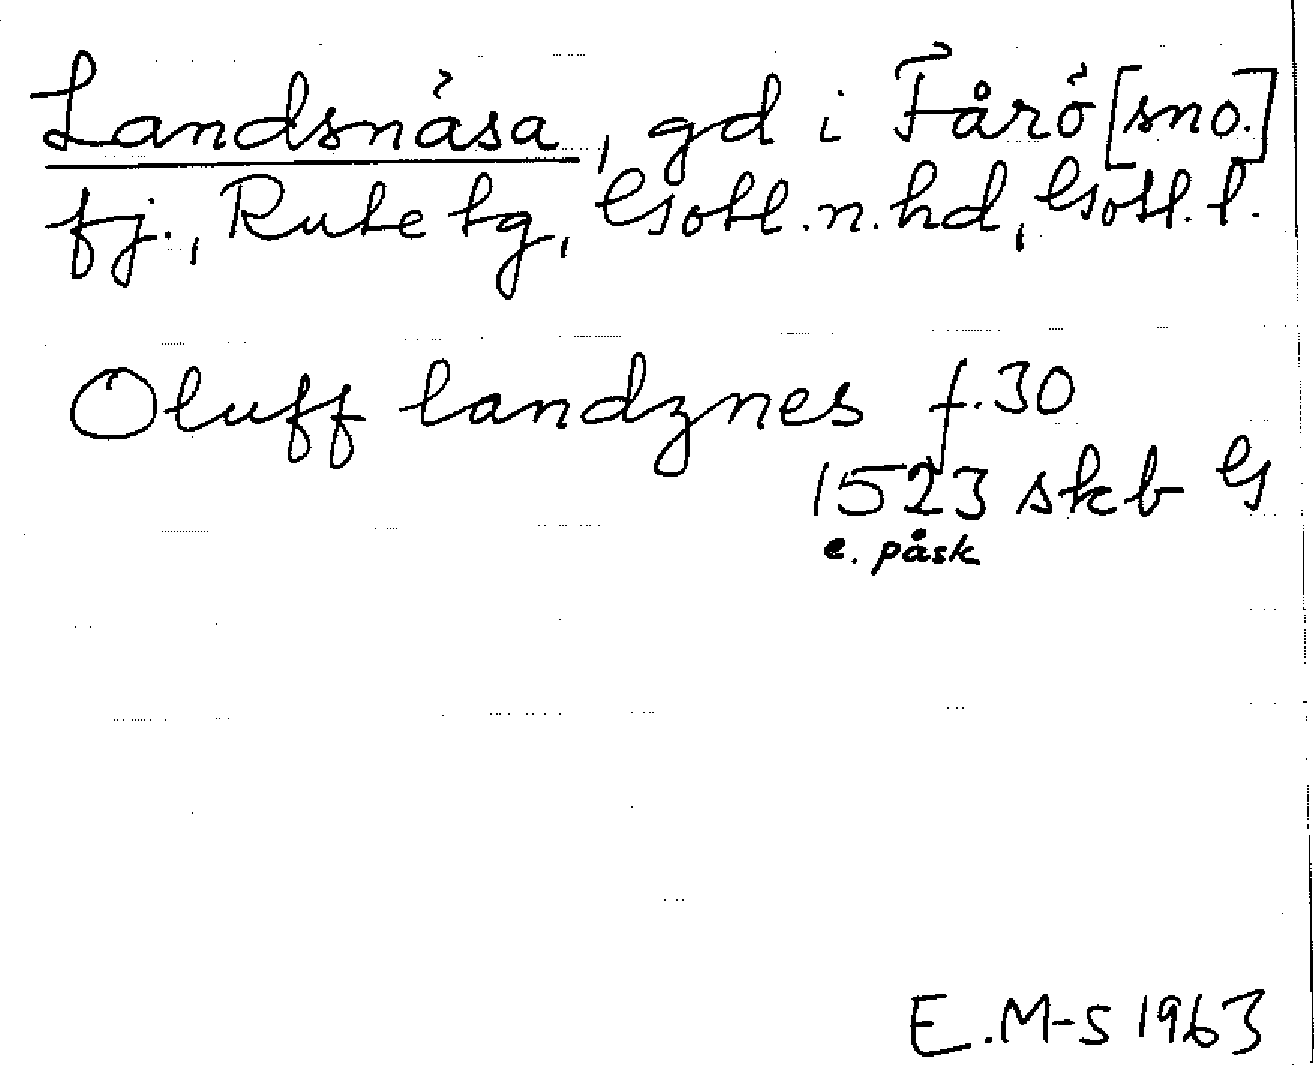 Landsnäsa, gd i Fårö [sno.]
fj., Rute tg, Gotl. n. hd, Gotl. l.
Oluff landznes f. 30
1523 skb G
e. påsk
E. M-S 1963